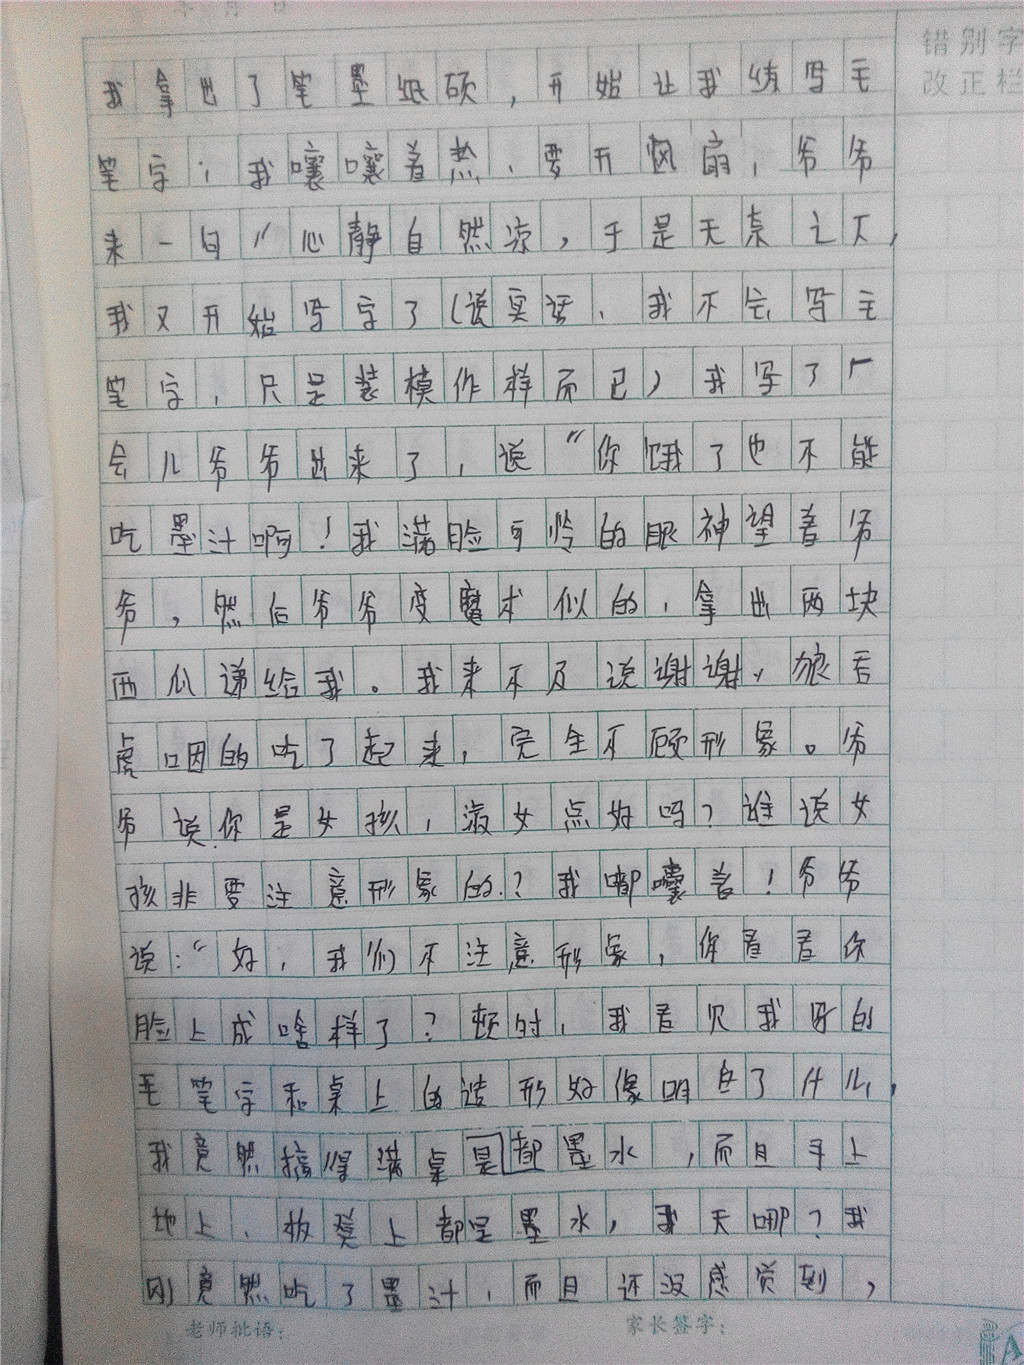 错别字
改正栏
我拿出了笔墨纸砚，开始让我练写毛
笔字；我嚷嚷着热，要开风扇，爷爷
来一句“心静自然凉，于是无奈之下，
我又开始写字了（说实话，我不会写毛
笔字，只是装模作样而已）我写了一
会儿爷爷出来了，说“你饿了也不能
吃墨汁啊！我满脸可怜的眼神望着爷
爷，然后爷爷变魔术似的，拿出两块
西瓜递给我。我来不及说谢谢，狼吞
虎咽的吃了起来，完全不顾形象。爷
爷说你是女孩，淑女点好吗？谁说女
孩非要注意形象的？我嘟囔着！爷爷
说：“好，我们不注意形象，你看看你
脸上成啥样了？顿时，我看见我写的
毛笔字和桌上的造形好像明白了什么，
我竟然搞得满桌是都墨水，而且手上
地上，板凳上都是墨水，我天哪？我
刚竟然吃了墨汁，而且还没感觉到，
老师批语：
家长签字：